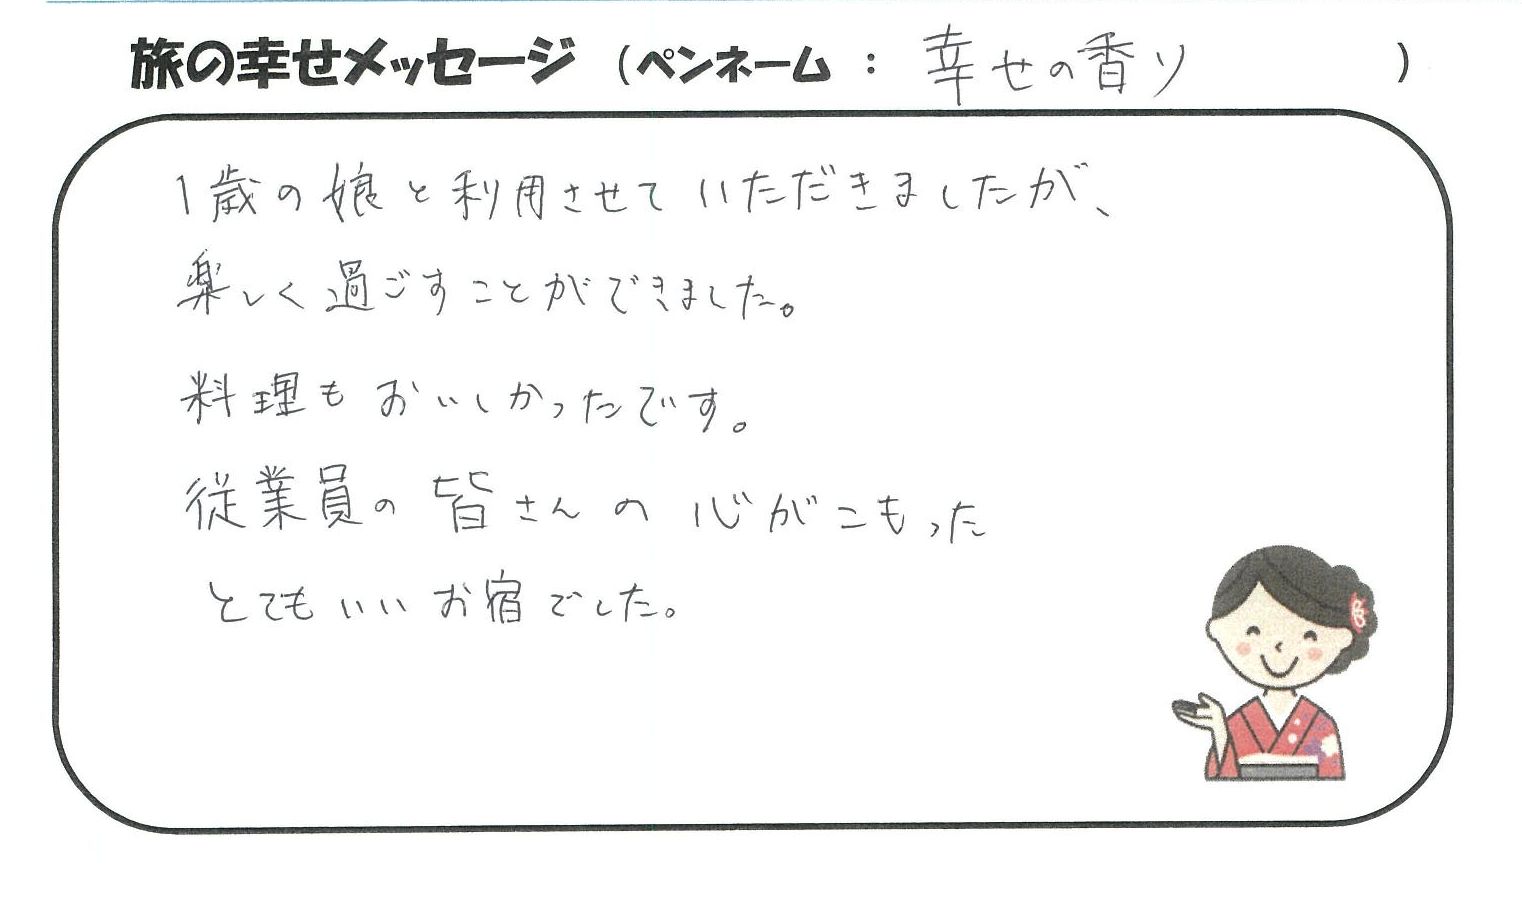 旅の幸せメッセージ （ペンネーム ： 幸せの香り ）
1歳の娘と利用させていただきましたが、
楽しく過ごすことができました。
料理もおいしかったです。
従業員の皆さんの心がこもった
とてもいいお宿でした。